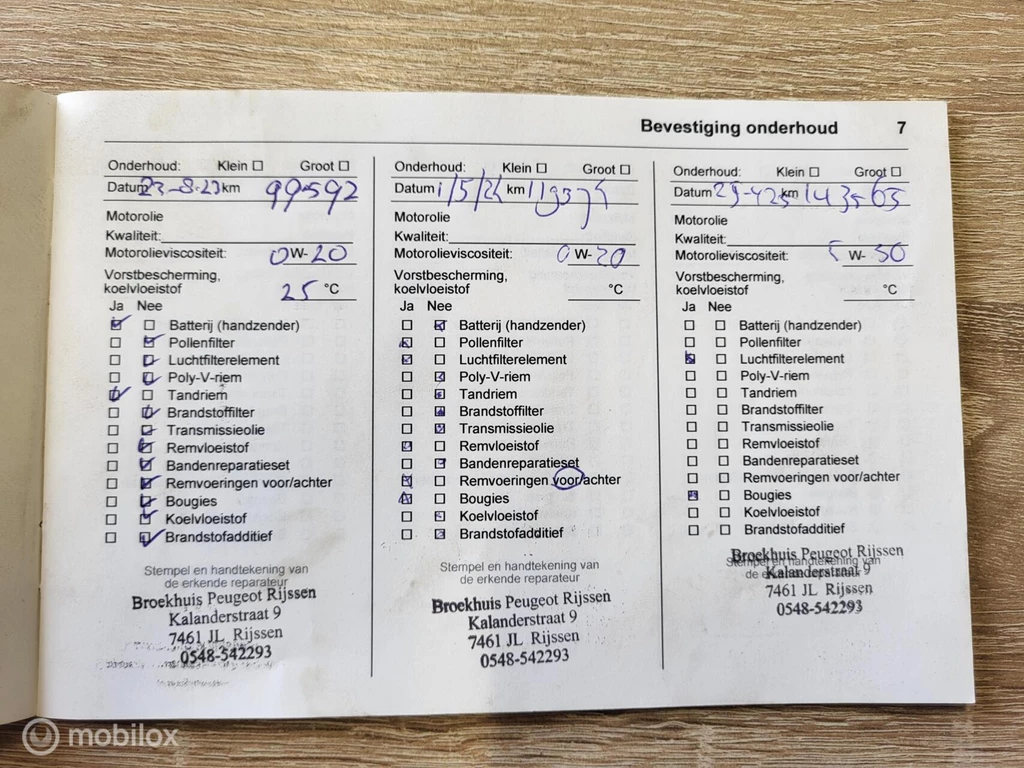 Bevestiging onderhoud 7
Onderhoud: Klein Groot
Datum 23-8-23 km 99592
Motorolie
Kwaliteit:
Motorolieviscositeit: 0W-20
Vorstbescherming,
koelvloeistof 25 °C
Ja Nee
Batterij (handzender)
Pollenfilter
Luchtfilterelement
Poly-V-riem
Tandriem
Brandstoffilter
Transmissieolie
Remvloeistof
Bandenreparatieset
Remvoeringen voor/achter
Bougies
Koelvloeistof
Brandstofadditief
Stempel en handtekening van
de erkende reparateur
Broekhuis Peugeot Rijssen
Kalanderstraat 9
7461 JL Rijssen
0548-542293
Onderhoud: Klein Groot
Datum 1/5/24 km
Motorolie
Kwaliteit:
Motorolieviscositeit: 0W-20
Vorstbescherming,
koelvloeistof °C
Ja Nee
Batterij (handzender)
Pollenfilter
Luchtfilterelement
Poly-V-riem
Tandriem
Brandstoffilter
Transmissieolie
Remvloeistof
Bandenreparatieset
Remvoeringen voor/achter
Bougies
Koelvloeistof
Brandstofadditief
Stempel en handtekening van
de erkende reparateur
Broekhuis Peugeot Rijssen
Kalanderstraat 9
7461 JL Rijssen
0548-542293
Onderhoud: Klein Groot
Datum km 143565
Motorolie
Kwaliteit:
Motorolieviscositeit: W-30
Vorstbescherming,
koelvloeistof °C
Ja Nee
Batterij (handzender)
Pollenfilter
Luchtfilterelement
Poly-V-riem
Tandriem
Brandstoffilter
Transmissieolie
Remvloeistof
Bandenreparatieset
Remvoeringen voor/achter
Bougies
Koelvloeistof
Brandstofadditief
Stempel en handtekening van
de erkende reparateur
Broekhuis Peugeot Rijssen
Kalanderstraat 9
7461 JL Rijssen
0548-542293
mobilox